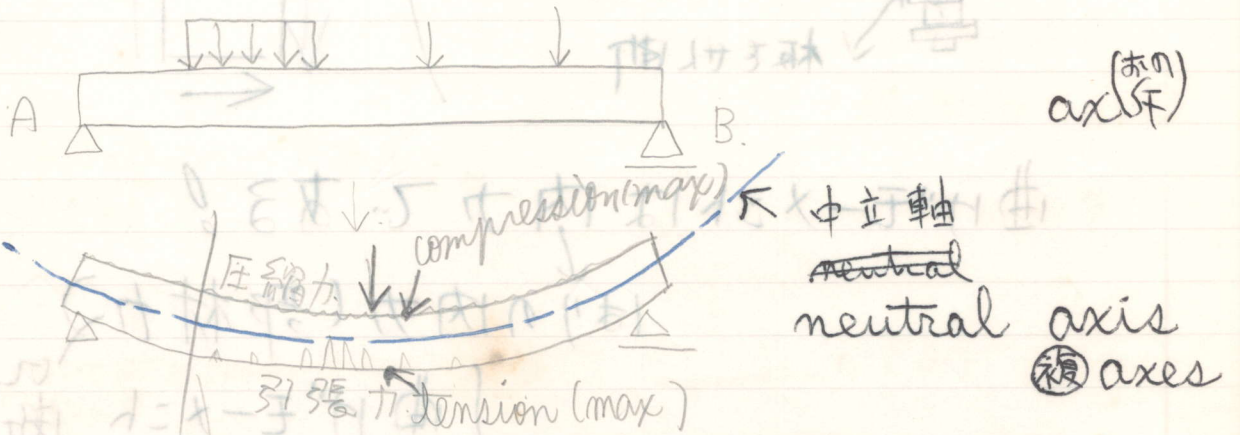 ax(おの 斧)
A
B.
compression(max)
中立軸
圧縮力
neutral
neutral axis
複 axes
引張力
tension (max)